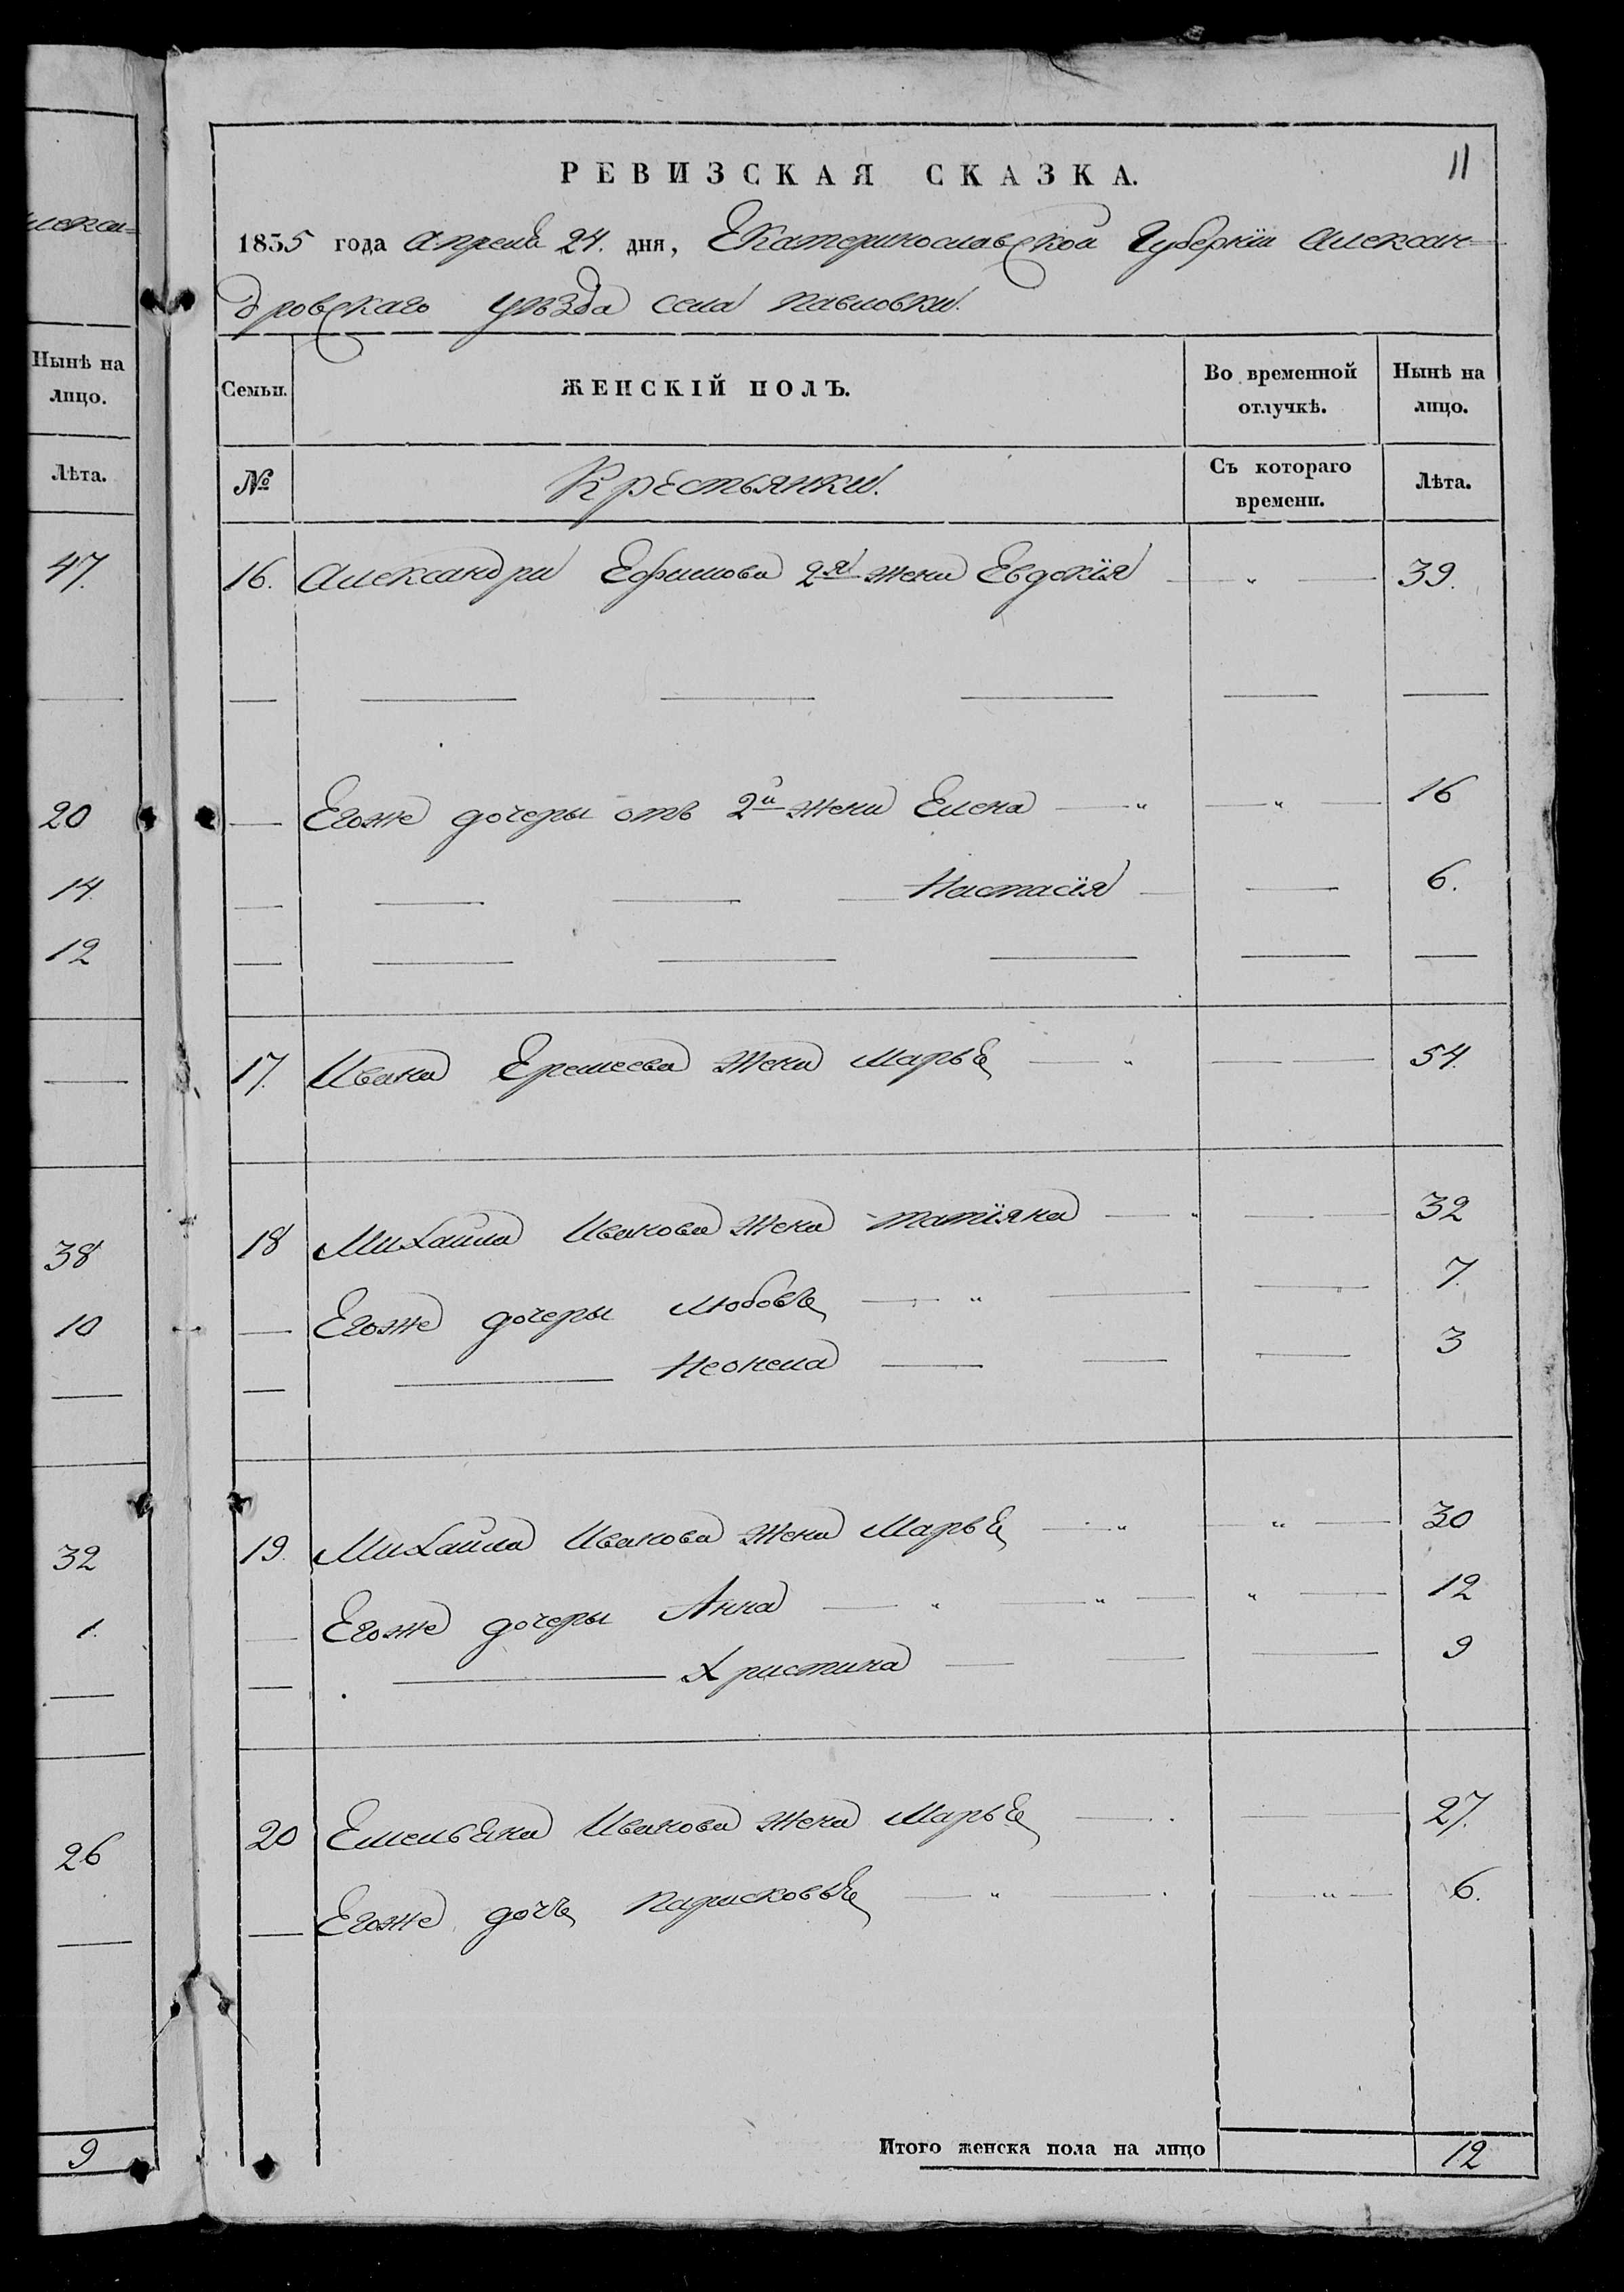 лекса=
Нынѣ на
лицо.
Лѣта.
47.
20
14.
12
38
10
32
1.
26
9
11
РЕВИЗСКАЯ СКАЗКА.
1835 года Апреля 24. дня, Екатеринославской Губернїи Алексан=
дровскаго уѣзда села Павловки.
Семьи. ЖЕНСКІЙ ПОЛЪ. Во временной отлучкѣ. Нынѣ на лицо.
№ Крестьянки. Съ котораго времени. Лѣта.
16. Александра Ефимова 2я жена Евдокїя — " — 39.
— — — — — —
— Егоже дочеры отъ 2й жены Елена — " — " — 16
— — — — Настасїя — — 6.
— — — — — —
17. Ивана Еремеева жена Марья — " — — 54.
18 Михайла Иванова жена Татїяна — " — — 32
— Егоже дочеры Любовь — " — — 7.
— — Неонела — — — 3
19. Михайла Иванова жена Марья — " — " — 30
— Егоже дочеры Анна — " — " — " — 12
— — Христина — — — 9
20 Емельяна Иванова жена Марья — — 27.
— Егоже дочь Парасковья — " — — " — 6.
Итого женска пола на лицо 12